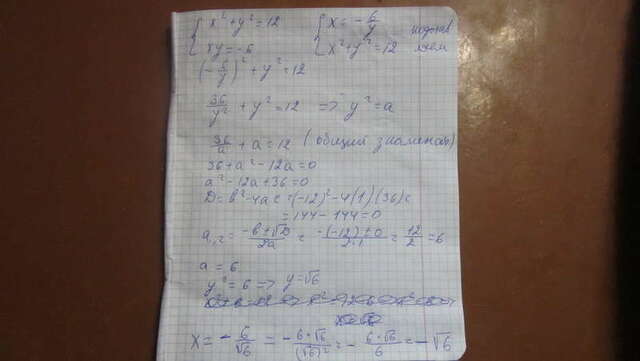 { x²+y²=12 { x=-6/y подстав
{ xy=-6 { x²+y²=12 ляем
(-6/y)²+y²=12
36/y²+y²=12 => y²=a
36/a+a=12 (общий знаменат)
36+a²-12a=0
a²-12a+36=0
D=b²-4ac=(-12)²-4(1)(36)=
=144-144=0
a₁,₂=(-b±√D)/2a=(-(-12)±0)/2·1=12/2=6
a=6
y²=6 => y=√6
x=-6/√6=-6·√6/(√6)²=-6·√6/6=-√6